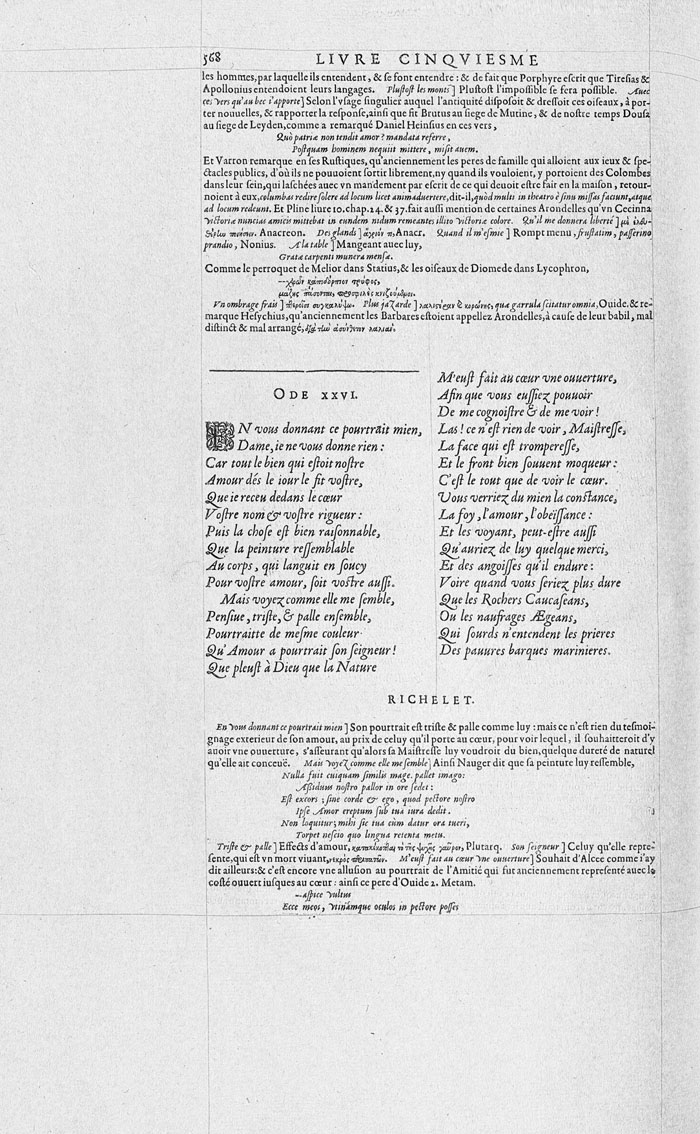 568 LIVRE CINQVIESME
les hommes, par laquelle ils entendent, & se font entendre : & de fait que Porphyre escrit que Tiresias &
Apollonius entendoient leurs langages. Plustost les monts] Plustost l'impossible se fera possible. Auec
ces vers qu'au bec i'apporte] Selon l'vsage singulier auquel l'antiquité disposoit & dressoit ces oiseaux, à por-
ter nouuelles, & rapporter la response, ainsi que fit Brutus au siege de Mutine, & de nostre temps Dousa
au siege de Leyden, comme a remarqué Daniel Heinsius en ces vers,
Quò patriæ non tendit amor? mandata referre,
Postquam hominem nequiit mittere, misit auem.
Et Varron remarque en ses Rustiques, qu'anciennement les peres de famille qui alloient aux ieux & spe-
ctacles publics, d'où ils ne pouuoient sortir librement, ny quand ils vouloient, y portoient des Colombes
dans leur sein, qui laschées auec vn mandement par escrit de ce qui deuoit estre fait en la maison, retour-
noient à eux, columbas redire solere ad locum licet animaduertere, dit-il, quòd multi in theatro è sinu missas faciunt, atque
ad locum redeunt. Et Pline liure 10. chap. 24. & 37. fait aussi mention de certaines Arondelles qu'vn Cecinna
victoriæ nuncias amicis mittebat in eundem nidum remeantes illito victoriæ colore. Qu'il me donnera liberté]
Anacreon. Des glands] Anacr. Quand il m'esmie] Rompt menu, frustatim, passerino
prandio, Nonius. A la table] Mangeant auec luy,
Grata carpenti munera mensæ.
Comme le perroquet de Melior dans Statius, & les oiseaux de Diomede dans Lycophron,
Vn ombrage frais] Plus jazarde] quæ garrula scitatur omnia, Ouide. & re-
marque Hesychius, qu'anciennement les Barbares estoient appellez Arondelles, à cause de leur babil, mal
distinct & mal arrangé,
ODE XXVI.
EN vous donnant ce pourtrait mien,
Dame, ie ne vous donne rien :
Car tout le bien qui estoit nostre
Amour dés le iour le fit vostre,
Que ie receu dedans le cœur
Vostre nom & vostre rigueur :
Puis la chose est bien raisonnable,
Que la peinture ressemblable
Au corps, qui languit en soucy
Pour vostre amour, soit vostre aussi.
Mais voyez comme elle me semble,
Pensiue, triste, & palle ensemble,
Pourtraitte de mesme couleur
Qu'Amour a pourtrait son seigneur !
Que pleust à Dieu que la Nature
M'eust fait au cœur vne ouuerture,
Afin que vous eussiez pouuoir
De me cognoistre & de me voir !
Las ! ce n'est rien de voir, Maistresse,
La face qui est tromperesse,
Et le front bien souuent moqueur :
C'est le tout que de voir le cœur.
Vous verriez du mien la constance,
La foy, l'amour, l'obeïssance :
Et les voyant, peut-estre aussi
Qu'auriez de luy quelque merci,
Et des angoisses qu'il endure :
Voire quand vous seriez plus dure
Que les Rochers Caucaseans,
Ou les naufrages Ægeans,
Qui sourds n'entendent les prieres
Des pauures barques marinieres.
RICHELET.
En vous donnant ce pourtrait mien] Son pourtrait est triste & palle comme luy : mais ce n'est rien du tesmoi-
gnage exterieur de son amour, au prix de celuy qu'il porte au cœur, pour voir lequel, il souhaitteroit d'y
auoir vne ouuerture, s'asseurant qu'alors sa Maistresse luy voudroit du bien, quelque dureté de naturel
qu'elle ait conceuë. Mais voyez comme elle me semble] Ainsi Nauger dit que sa peinture luy ressemble,
Nulla fuit cuiquam similis mage. pallet imago:
Assiduus nostro pallor in ore sedet :
Est excors ; sine corde & ego, quod pectore nostro
Ipse Amor ereptum sub tua iura dedit.
Non loquitur; mihi sic tua cùm datur ora tueri,
Torpet nescio quo lingua retenta metu.
Triste & palle] Effects d'amour, Plutarq. Son seigneur] Celuy qu'elle repre-
sente, qui est vn mort viuant, M'eust fait au cœur vne ouuerture] Souhait d'Alcee comme i'ay
dit ailleurs: & c'est encore vne allusion au pourtrait de l'Amitié qui fut anciennement representé auec le
costé ouuert iusques au cœur : ainsi ce pere d'Ouide 2. Metam.
--aspice vultus
Ecce meos, vtinámque oculos in pectore posses